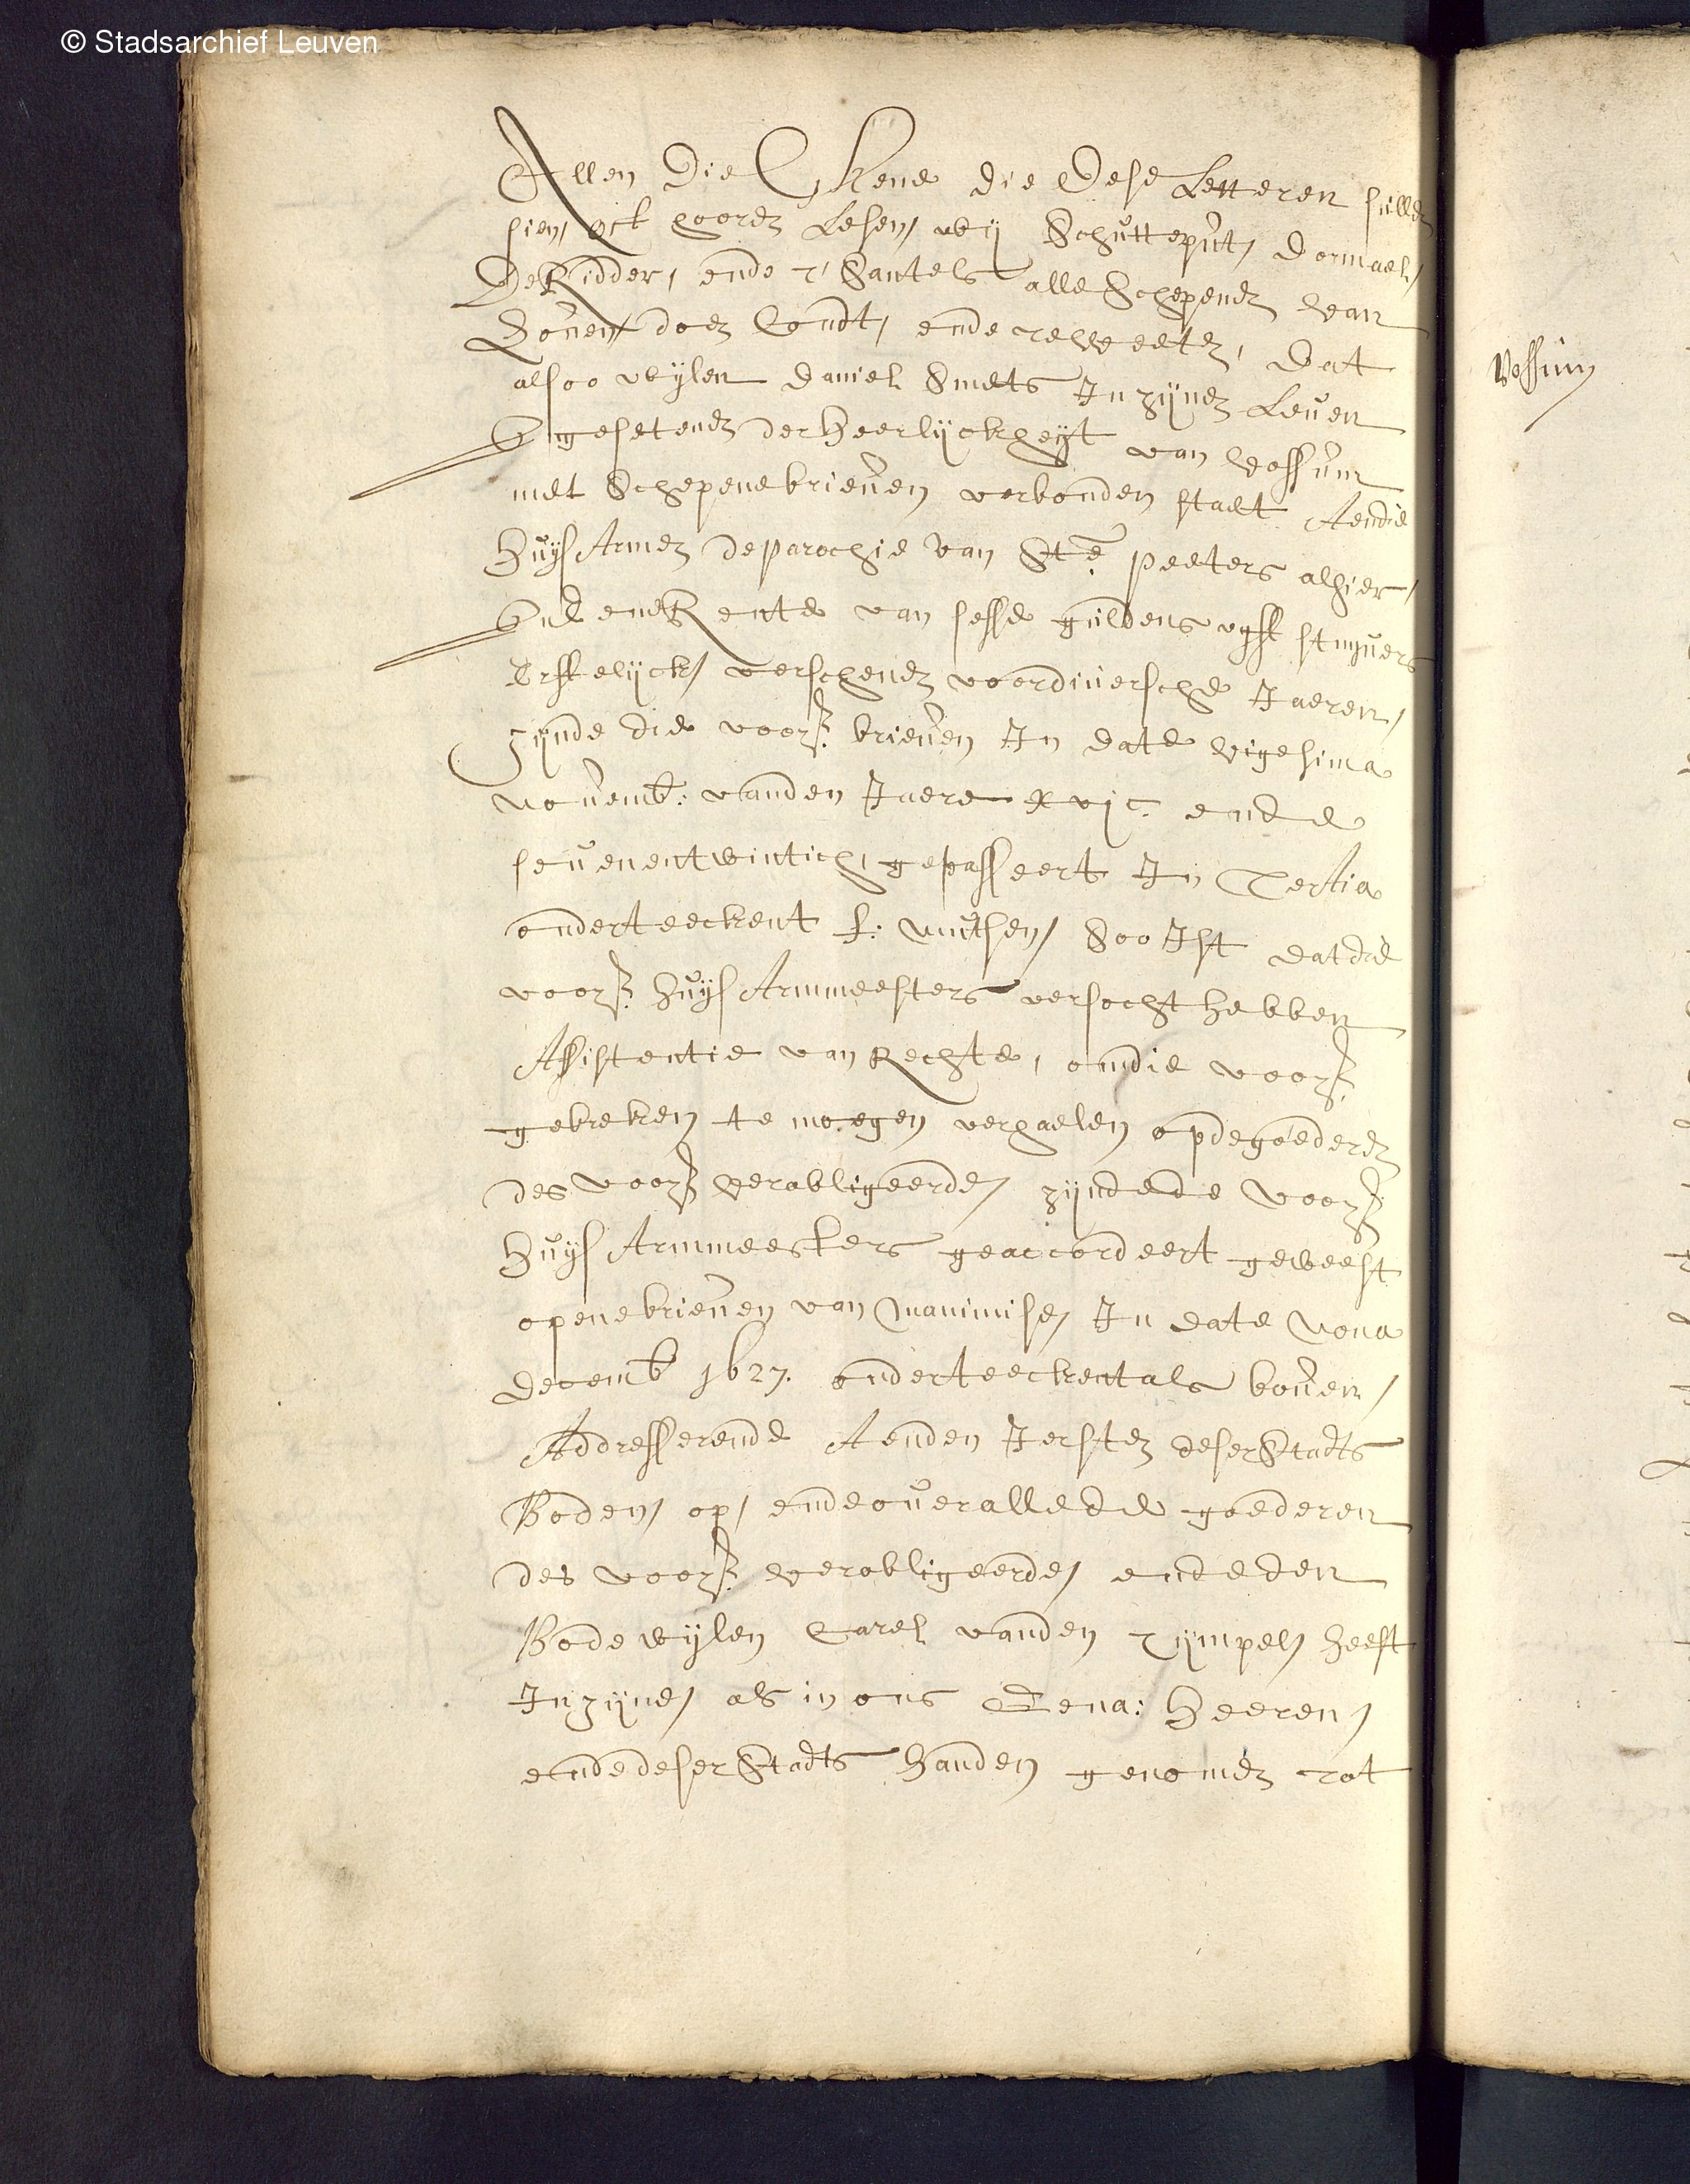 © Stadsarchief Leuven
Allen Die Ghene die Dese Letteren sullen
sien, oft hooren Lesen, wij Schutteput, Dormael,
De Ridder, ende t'Santels alle Schepenen van
Loven doen Condt, ende te weeten, Dat
alsoo wylen Daniel Smets In zynen Leven
Ingesetenen der Heerlyckheyt van Vossum
met Schepenebrieven verbonden staet Aendie
Huys Armen de parochie van Ste. Peeters alhier,
In eene Rente van sesse guldens vyff stuyvers
Erffelyck, verschenen voor diversche Jaeren,
zynde die voorß. brieven In date vigesima
novemb: vanden Jaere xvjc. ende
sevenentwintich, gepasseert In Tertia
onderteeckent f: , Soo Ist dat die
voorß. Huys Armmeesters versocht hebben
Assistentie van Rechte, om die voorß.
gebreken te moegen verhaelen op de goederen
des voorß verobligeerde, zynde de voorß.
Huys Armmeesters geaccordeert geweest
opene brieven van manimisse, In date nona
decemb 1627. onderteeckent als boven,
Addresserende Aenden Iersten deser Stadts
Boden, op, ende over alle de goederen
des voorß. verobligeerde, ende den
Bode wylen Carel vanden Tympel, heeft
In zyne, als in ons Gena: Heeren,
ende deser Stadts handen genomen tot
Vossum